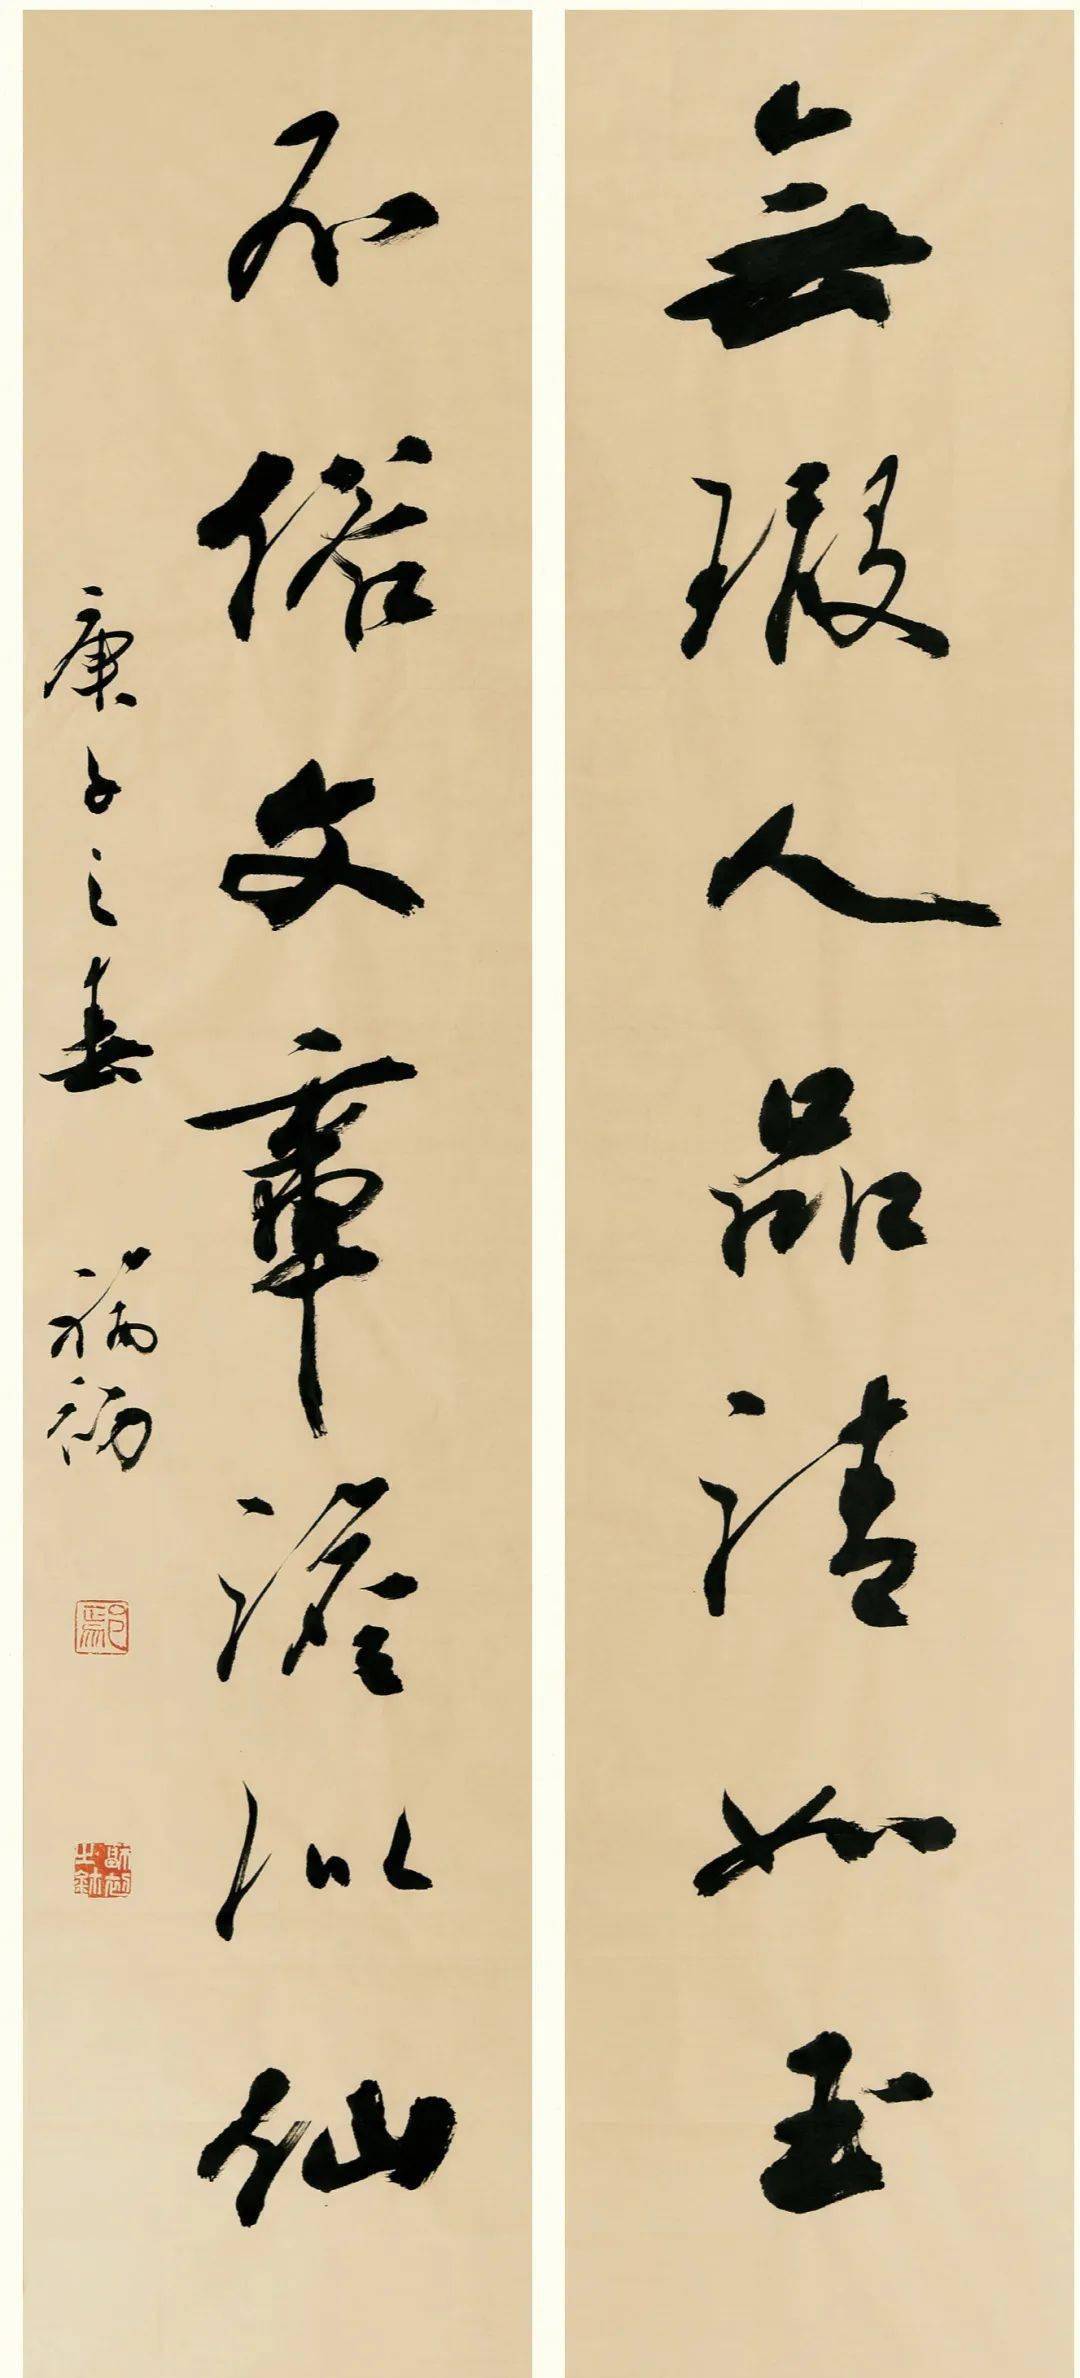 無瑕人品清如玉
不俗文章澹似仙
庚子之春
福初